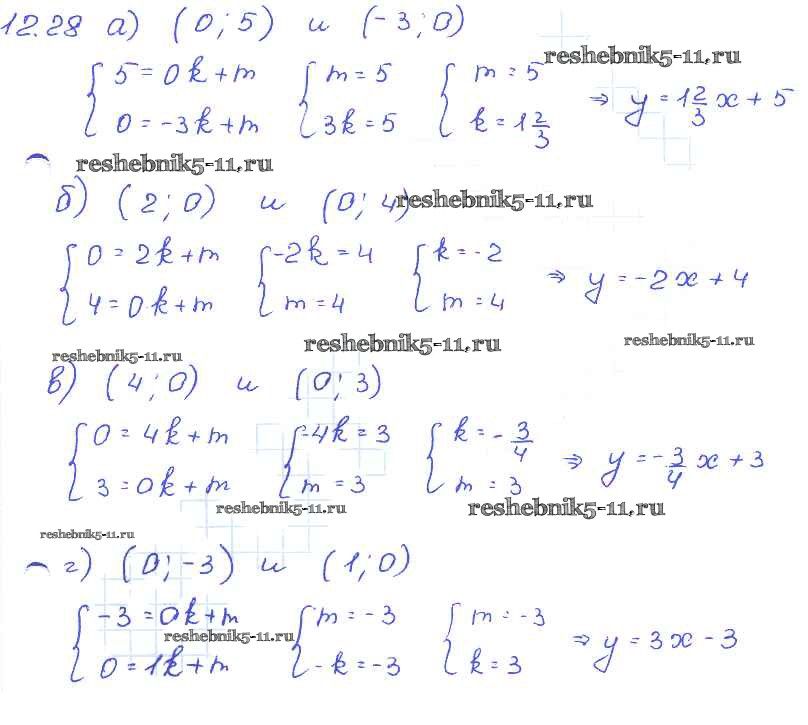 12.28 а) (0; 5) и (-3; 0)
reshebnik5-11.ru
{ 5 = 0k + m { m = 5 { m = 5
0 = -3k + m 3k = 5 k = 1 2/3 ⇒ y = 1 2/3 x + 5
reshebnik5-11.ru
б) (2; 0) и (0; 4)
reshebnik5-11.ru
{ 0 = 2k + m { -2k = 4 { k = -2
4 = 0k + m m = 4 m = 4 ⇒ y = -2x + 4
reshebnik5-11.ru
reshebnik5-11.ru
reshebnik5-11.ru
в) (4; 0) и (0; 3)
{ 0 = 4k + m { -4k = 3 { k = - 3/4
3 = 0k + m m = 3 m = 3 ⇒ y = - 3/4 x + 3
reshebnik5-11.ru
reshebnik5-11.ru
reshebnik5-11.ru
г) (0; -3) и (1; 0)
{ -3 = 0k + m { m = -3 { m = -3
reshebnik5-11.ru
0 = 1k + m -k = -3 k = 3 ⇒ y = 3x - 3